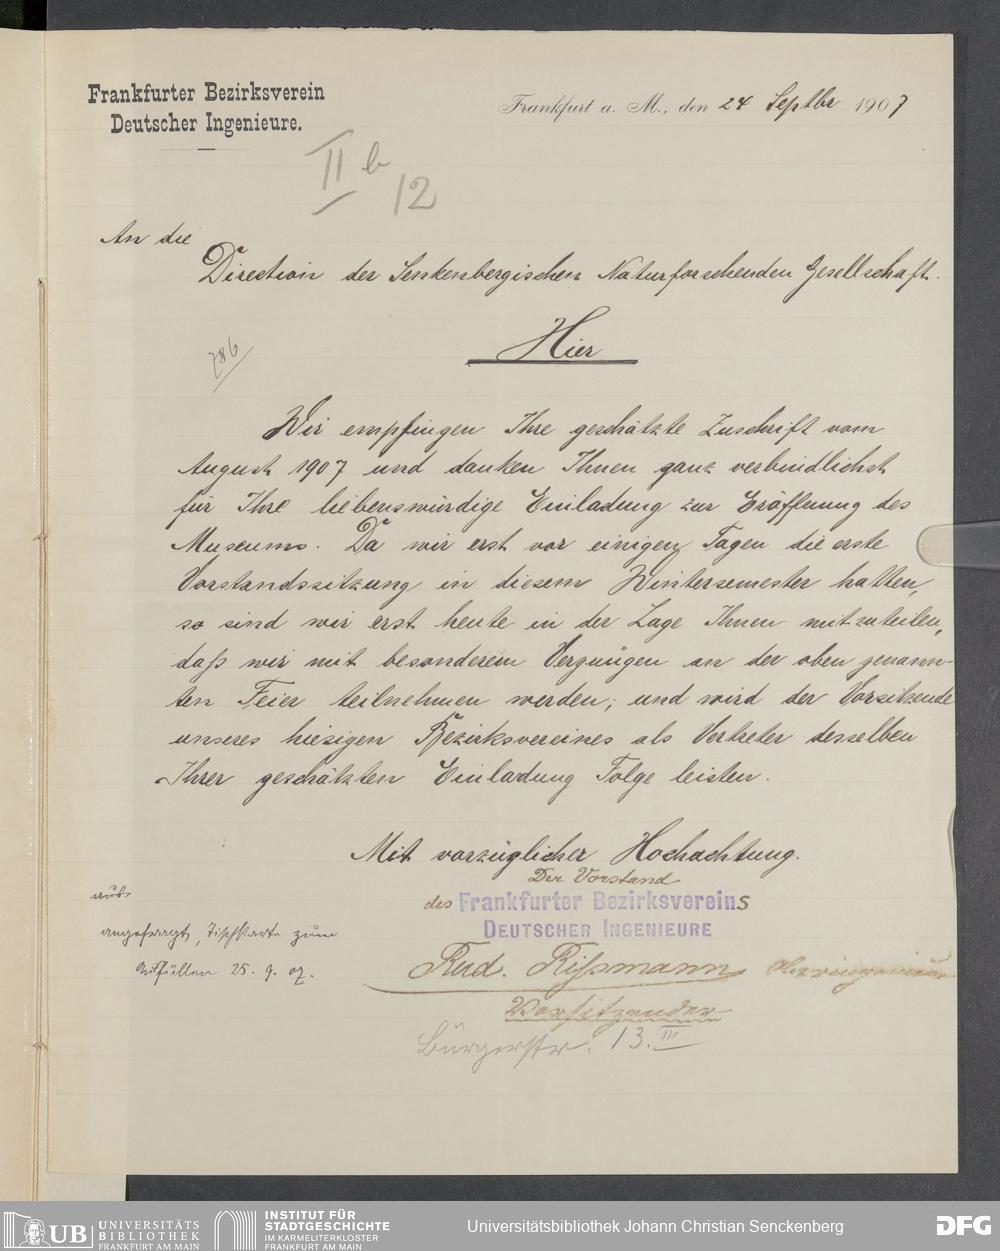 Frankfurter Bezirksverein
Deutscher Ingenieure.
Frankfurt a. M., den 24 Septbr 1907
II b
12
An die
Direction der Senkenbergischen Naturforschenden Gesellschaft.
786
Hier
Wir empfingen Ihre geschätzte Zuschrift vom
August 1907 und danken Ihnen ganz verbindlichst
für Ihre liebenswürdige Einladung zur Eröffnung des
Museums. Da wir erst vor einigen Tagen die erste
Vorstandssitzung in diesem Wintersemester hatten,
so sind wir erst heute in der Lage Ihnen mitzuteilen,
daß wir mit besonderem Vergnügen an der oben genann-
ten Feier teilnehmen werden; und wird der Vorsitzende
unseres hiesigen Bezirksvereines als Vertreter desselben
Ihrer geschätzten Einladung Folge leisten.
Mit vorzüglicher Hochachtung.
Der Vorstand
des Frankfurter Bezirksvereins
DEUTSCHER INGENIEURE
Rud. Rißmann Oberingenieur
Vorsitzender
Bürgerstr. 13. III
angefragt, Tischkarte zum
Ausfüllen 25. 9. 07.
UB UNIVERSITÄTS
BIBLIOTHEK
FRANKFURT AM MAIN
INSTITUT FÜR
STADTGESCHICHTE
IM KARMELITERKLOSTER
FRANKFURT AM MAIN
Universitätsbibliothek Johann Christian Senckenberg
DFG